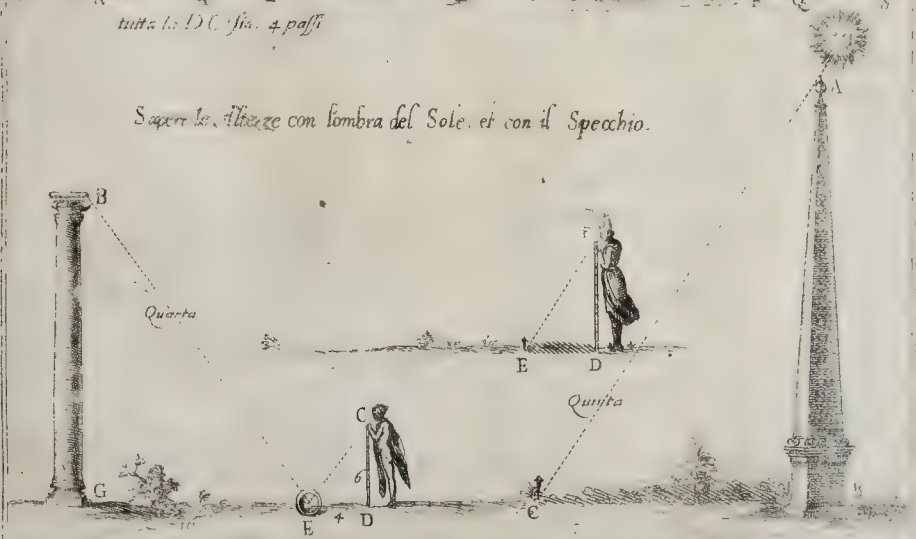 tutta la DC sia. 4 passi
Sapere le Altezze con l'ombra del Sole. et con il Specchio.
A
B
F
Quarta
E D
Quinta
C
6
G
E 4 D
C